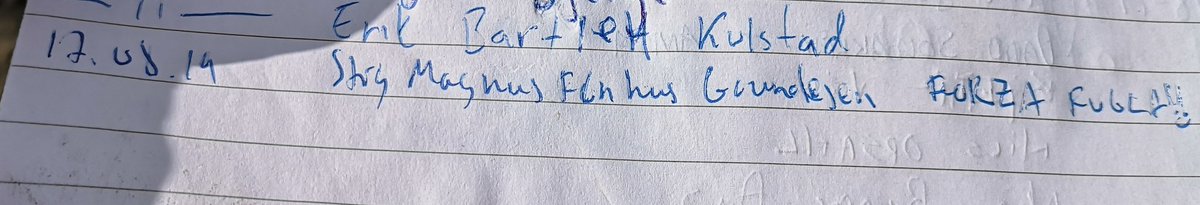 — 11 — Erik Bartlett Kulstad
17.08.19 Stig Magnus Finhus Gundesen FORZA FUGLA!!